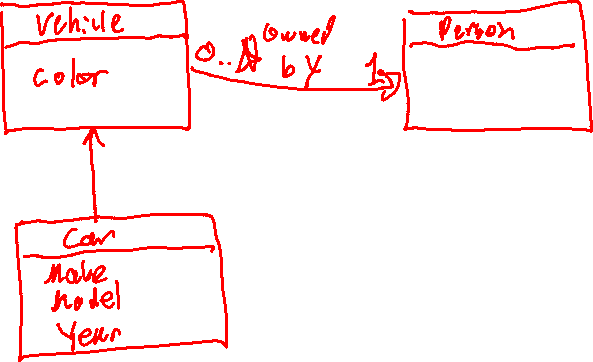 Vehicle
color
0..
owned
by
1
Person
Car
Make
Model
Year